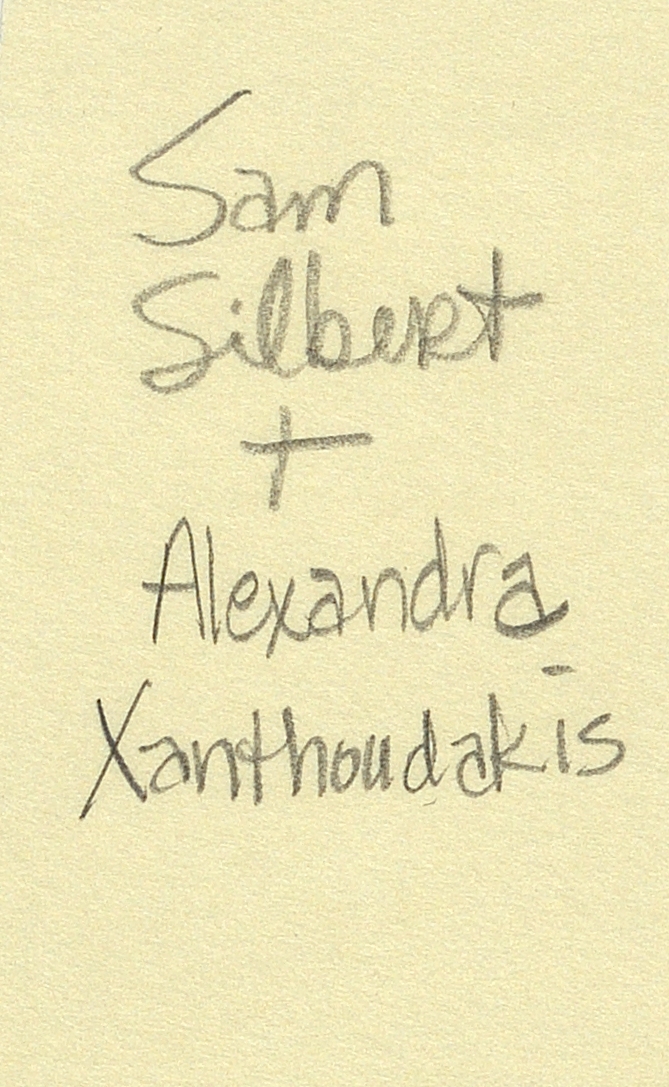 Sam
Silbert
+
Alexandra
Xanthoudakis